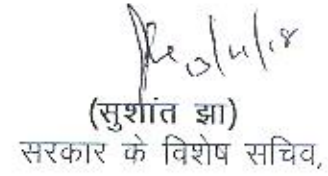 (सुशांत झा)
सरकार के विशेष सचिव,